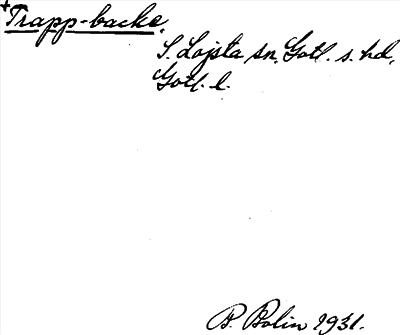 +Trapp-backe.
S. Lojsta sn, Gotl. s. hd,
Gotl. l.
B. Bolin 1931.